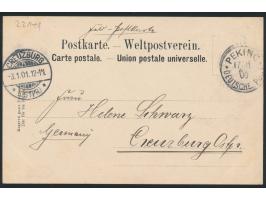 Feld-Postkarte
Postkarte. — Weltpostverein.
Carte postale. — Union postale universelle.
CREUZBURG
3.1.01.
PEKING
DEUTSCHE
Frau
Helene Schwarz
Germany
Creuzburg O/S.